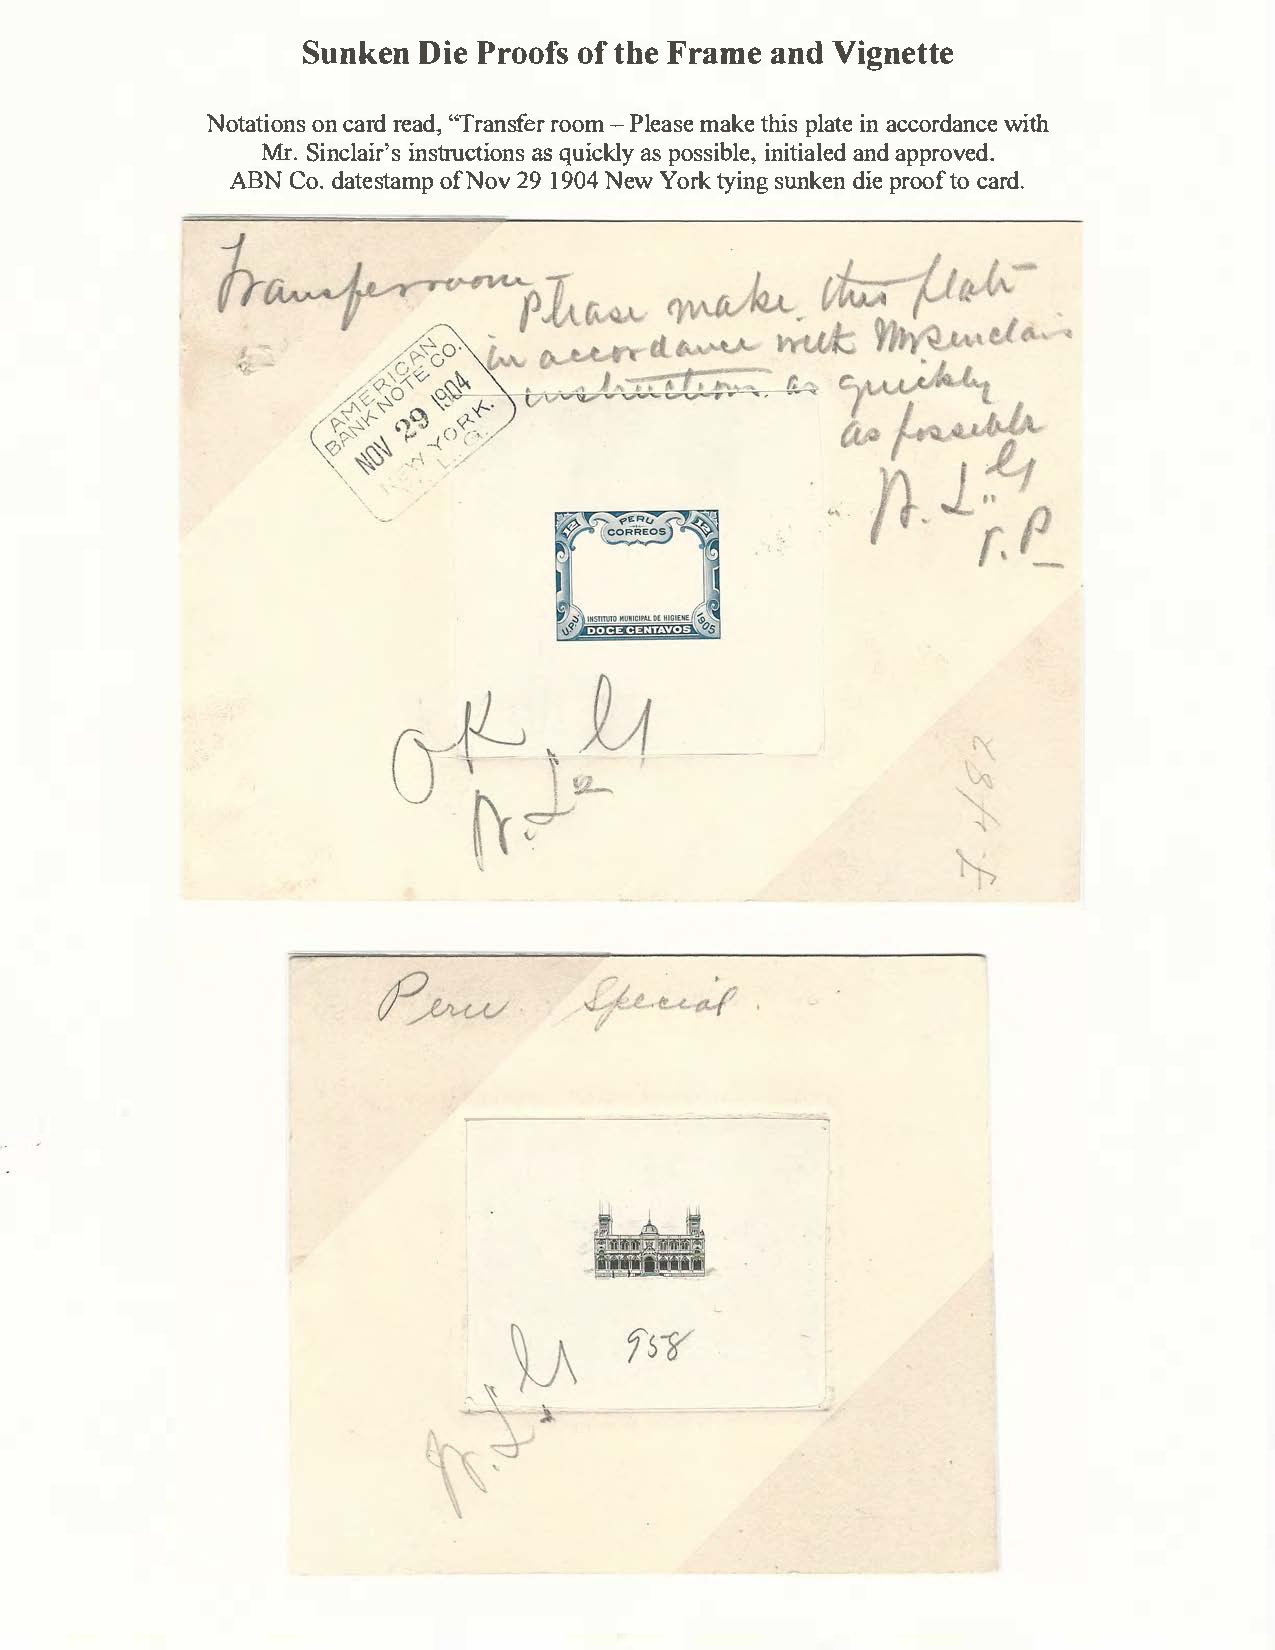 Sunken Die Proofs of the Frame and Vignette
Notations on card read, “Transfer room – Please make this plate in accordance with
Mr. Sinclair’s instructions as quickly as possible, initialed and approved.
ABN Co. datestamp of Nov 29 1904 New York tying sunken die proof to card.
Transfer room –
Please make this plate
in accordance with Mr Sinclairs
instructions as quickly
as possible
r. P
AMERICAN
BANK NOTE CO.
NOV 29 1904
NEW YORK.
L. G.
12 12
PERU
CORREOS
INSTITUTO MUNICIPAL DE HIGIENE
U.P.U. DOCE CENTAVOS 1905
OK
7.482
Peru Special.
958